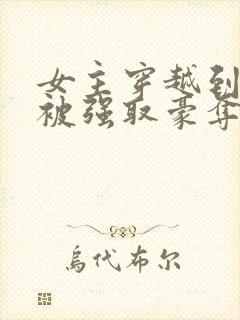 女主穿越到
被强取豪夺
烏代布尔